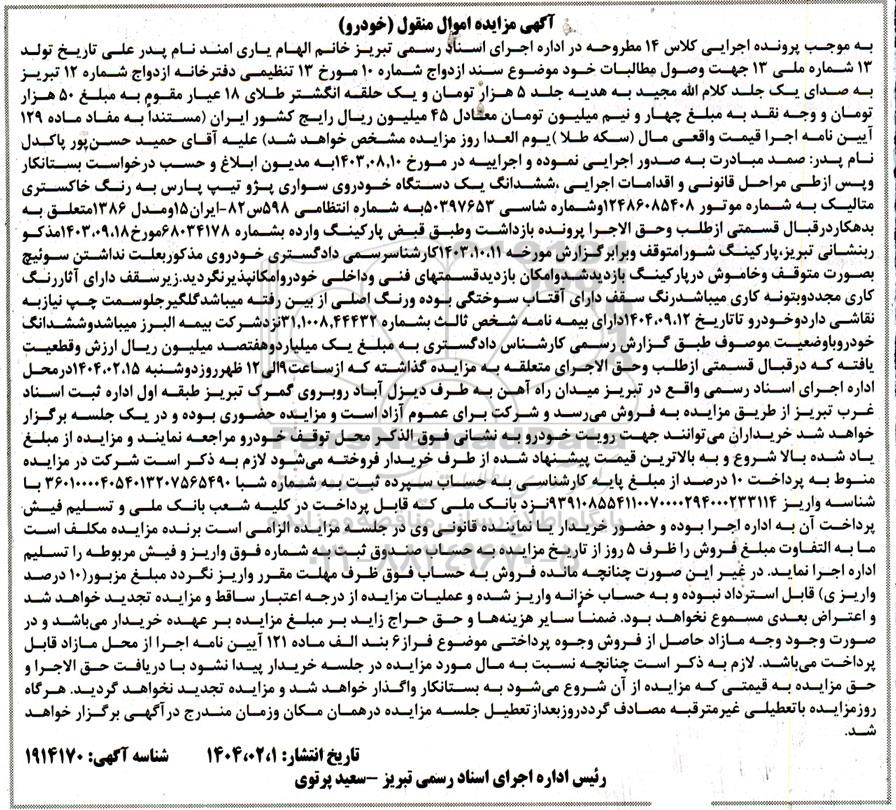 آگهی مزایده اموال منقول (خودرو)
به موجب پرونده اجرایی کلاس ۱۴ مطروحه در اداره اجرای اسناد رسمی تبریز خانم الهام یاری امند نام پدر علی تاریخ تولد
۱۳ شماره ملی ۱۳ جهت وصول مطالبات خود موضوع سند ازدواج شماره ۱۰ مورخ ۱۳ تنظیمی دفترخانه ازدواج شماره ۱۲ تبریز
به صدای یک جلد کلام الله مجید به هدیه جلد ۵ هزار تومان و یک حلقه انگشتر طلای ۱۸ عیار مقوم به مبلغ ۵۰ هزار
تومان و وجه نقد به مبلغ چهار و نیم میلیون تومان معادل ۴۵ میلیون ریال رایج کشور ایران (مستنداً به مفاد ماده ۱۲۹
آیین نامه اجرا قیمت واقعی مال (سکه طلا )یوم العدا روز مزایده مشخص خواهد شد) علیه آقای حمید حسن‌پور پاکدل
نام پدر: صمد مبادرت به صدور اجرایی نموده و اجراییه در مورخ ۱۴۰۳،۰۸،۱۰به مدیون ابلاغ و حسب درخواست بستانکار
وپس ازطی مراحل قانونی و اقدامات اجرایی ،ششدانگ یک دستگاه خودروی سواری پژو تیپ پارس به رنگ خاکستری
متالیک به شماره موتور ۱۲۴۸۶۰۸۵۴۰۸وشماره شاسی ۵۰۳۹۷۶۵۳به شماره انتظامی ۵۹۸س۸۲-ایران۱۵ومدل ۱۳۸۶متعلق به
بدهکاردرقبال قسمتی ازطلب وحق الاجرا پرونده بازداشت وطبق قبض پارکینگ وارده بشماره ۶۸۰۳۴۱۷۸مورخ۱۴۰۳،۰۹،۱۸مذکو
ربنشانی تبریز،پارکینگ شورامتوقف وبرابرگزارش مورخه ۱۴۰۳،۱۰،۱۱کارشناسرسمی دادگستری خودروی مذکوربعلت نداشتن سوئیچ
بصورت متوقف وخاموش درپارکینگ بازدیدشدوامکان بازدیدقسمتهای فنی وداخلی خودروامکانپذیرنگردید.زیرسقف دارای آثاررنگ
کاری مجددوبتونه کاری میباشدرنگ سقف دارای آفتاب سوختگی بوده ورنگ اصلی از بین رفته میباشدگلگیرجلوسمت چپ نیازبه
نقاشی داردوخودرو تاتاریخ ۱۴۰۴،۰۹،۱۲دارای بیمه نامه شخص ثالث بشماره ۳۱،۱۰۰۸،۴۴۴۳۲نزدشرکت بیمه البرز میباشدوششدانگ
خودروباوضعیت موصوف طبق گزارش رسمی کارشناس دادگستری به مبلغ یک میلیاردوهفتصد میلیون ریال ارزش وقطعیت
یافته که درقبال قسمتی ازطلب وحق الاجرای متعلقه به مزایده گذاشته که ازساعت۹الی۱۲ ظهرروزدوشنبه ۱۴۰۴،۰۲،۱۵درمحل
اداره اجرای اسناد رسمی واقع در تبریز میدان راه آهن به طرف دیزل آباد روبروی گمرک تبریز طبقه اول اداره ثبت اسناد
غرب تبریز از طریق مزایده به فروش می‌رسد و شرکت برای عموم آزاد است و مزایده حضوری بوده و در یک جلسه برگزار
خواهد شد خریداران می‌توانند جهت رویت خودرو به نشانی فوق الذکر محل توقف خودرو مراجعه نمایند و مزایده از مبلغ
یاد شده بالا شروع و به بالاترین قیمت پیشنهاد شده از طرف خریدار فروخته می‌شود لازم به ذکر است شرکت در مزایده
منوط به پرداخت ۱۰ درصد از مبلغ پایه کارشناسی به حساب سپرده ثبت به شماره شبا ۳۶۰۱۰۰۰۰۴۰۵۴۰۱۳۲۰۷۵۶۵۴۹۰ با
شناسه واریز ۹۳۹۱۰۸۵۵۴۱۱۰۰۷۰۰۰۰۲۹۴۰۰۰۲۳۳۱۱۴نزد بانک ملی که قابل پرداخت در کلیه شعب بانک ملی و تسلیم فیش
پرداخت آن به اداره اجرا بوده و حضور خریدار یا نماینده قانونی وی در جلسه مزایده الزامی است برنده مزایده مکلف است
ما به التفاوت مبلغ فروش را ظرف ۵ روز از تاریخ مزایده به حساب صندوق ثبت به شماره فوق واریز و فیش مربوطه را تسلیم
اداره اجرا نماید. در غیر این صورت چنانچه مانده فروش به حساب فوق ظرف مهلت مقرر واریز نگردد مبلغ مزبور(۱۰ درصد
واریز ی) قابل استرداد نبوده و به حساب خزانه واریز شده و عملیات مزایده از درجه اعتبار ساقط و مزایده تجدید خواهد شد
و اعتراض بعدی مسموع نخواهد بود. ضمناً سایر هزینه‌ها و حق حراج زاید بر مبلغ مزایده بر عهده خریدار می‌باشد و در
صورت وجود وجه مازاد حاصل از فروش وجوه پرداختی موضوع فراز۶ بند الف ماده ۱۲۱ آیین نامه اجرا از محل مازاد قابل
پرداخت می‌باشد. لازم به ذکر است چنانچه نسبت به مال مورد مزایده در جلسه خریدار پیدا نشود با دریافت حق الاجرا و
حق مزایده به قیمتی که مزایده از آن شروع می‌شود به بستانکار واگذار خواهد شد و مزایده تجدید نخواهد گردید. هرگاه
روزمزایده باتعطیلی غیرمترقبه مصادف گرددروزبعدازتعطیل جلسه مزایده درهمان مکان وزمان مندرج درآگهی برگزار خواهد
شد.
تاریخ انتشار: ۱۴۰۴،۰۲،۱ شناسه آگهی: ۱۹۱۴۱۷۰
رئیس اداره اجرای اسناد رسمی تبریز –سعید پرتوی